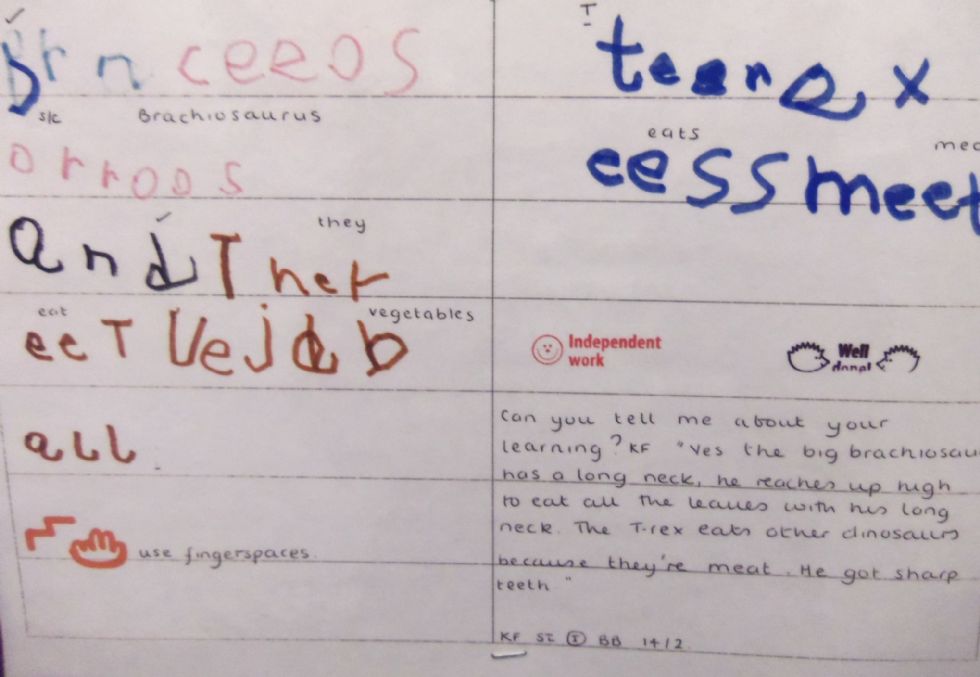 Brnceeos
s/c Brachiosaurus
orroos
they
andTher
eat vegetables
eeTVejdb
all.
use fingerspaces.
T
teenax
eats mea
eessmeet
Independent
work
Well
done!
Can you tell me about your
learning? KF "Yes the big brachiosau
has a long neck, he reaches up high
to eat all the leaves with his long
neck. The T-rex eats other dinosaurs
because they're meat. He got sharp
teeth"
KF SZ I BB 14/2